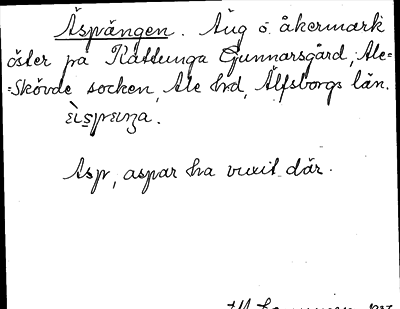 Äspängen. Äng o. åkermark
öster på Kattunga Gunnarsgård, Ale-
-Skövde socken, Ale hrd, Älfsborgs län.
Asp, aspar ha vuxit där.